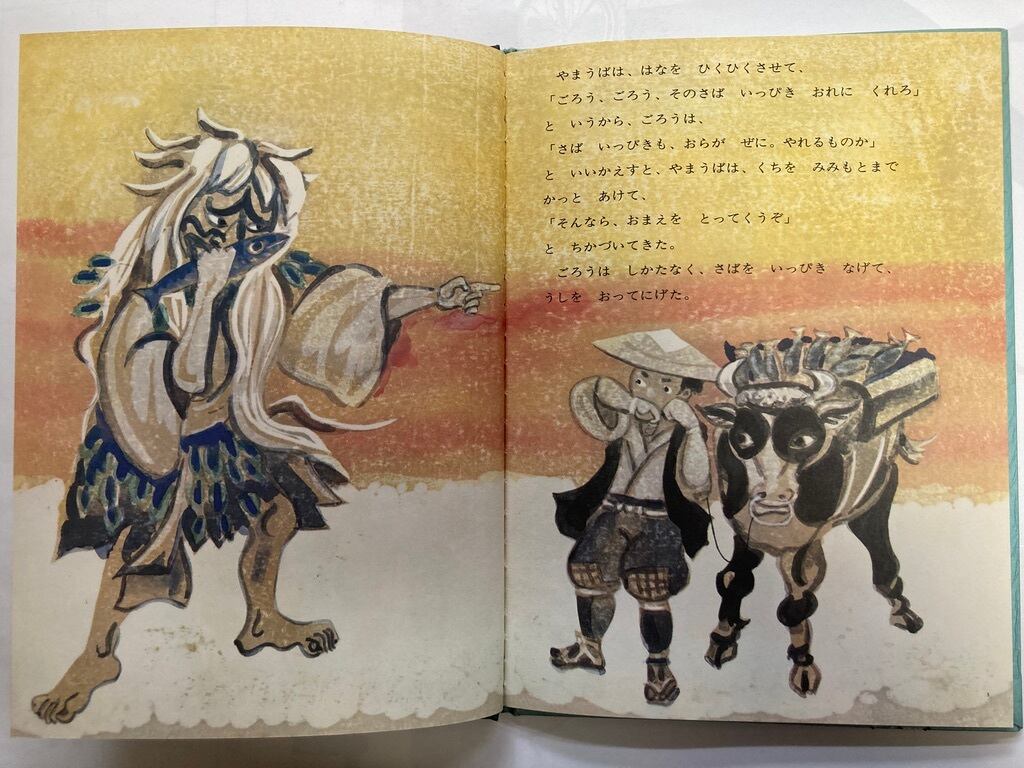 やまうばは、はなを　ひくひくさせて、
「ごろう、ごろう、そのさば　いっぴき　おれに　くれろ」
と　いうから、ごろうは、
「さば　いっぴきも、おらが　ぜに。やれるものか」
と　いいかえすと、やまうばは、くちを　みみもとまで
かっと　あけて、
「そんなら、おまえを　とってくうぞ」
と　ちかづいてきた。
ごろうは　しかたなく、さばを　いっぴき　なげて、
うしを　おってにげた。